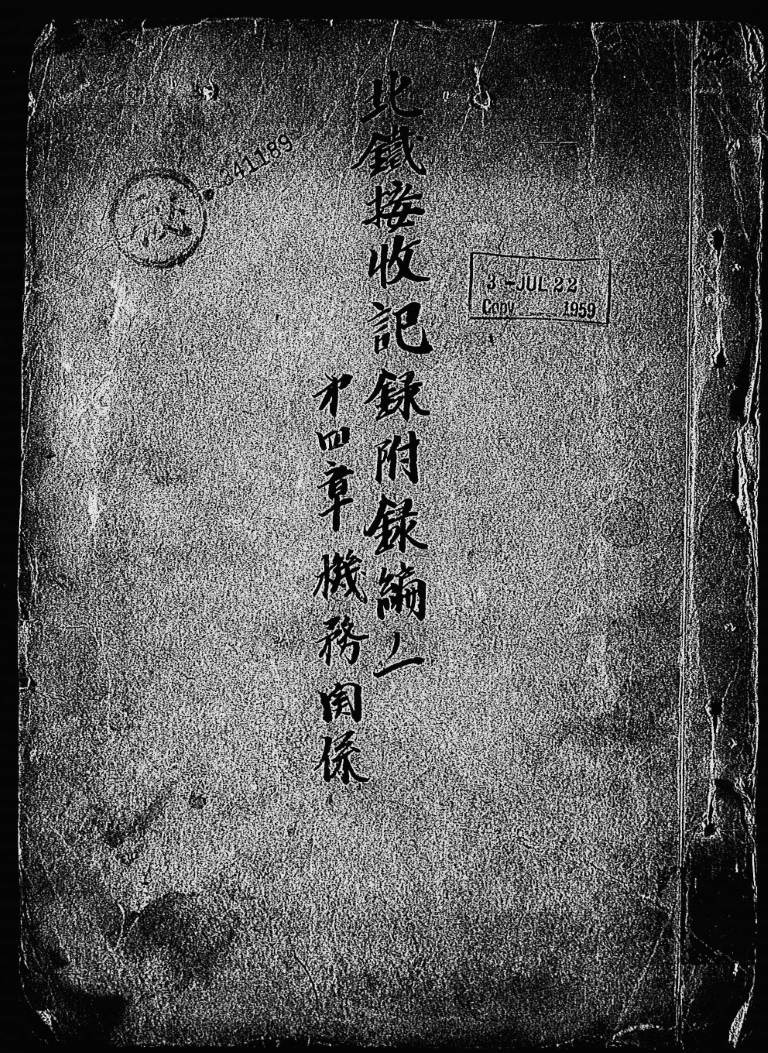 北鐵接收記録附録編ノ一
第四章機務関係
秘
341189
3-JUL 22
Copy 1959